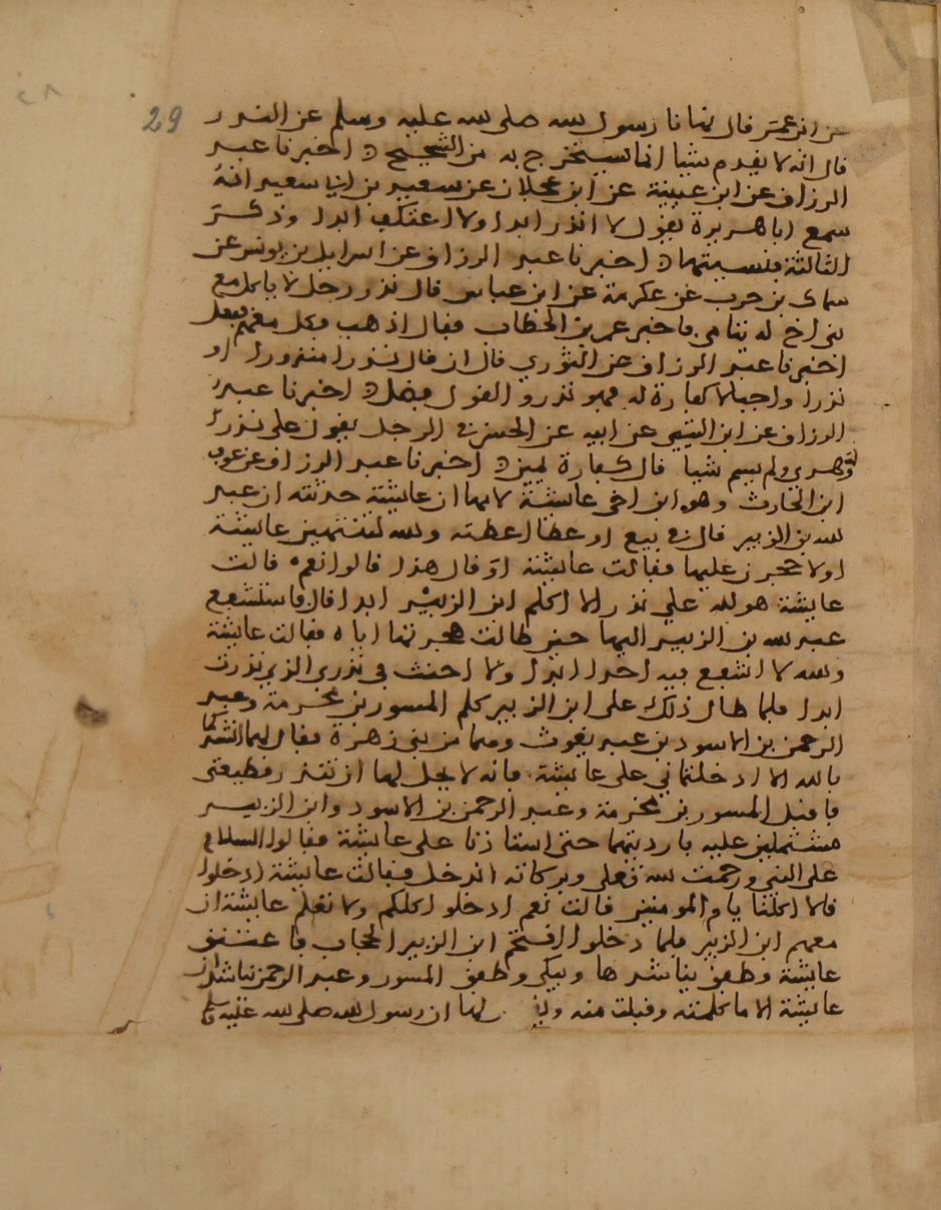 29
عن ابن عمر قال نهانا رسول الله صلى الله عليه وسلم عن النذر
قال انه لا يقدم شيا انما يستخرج به من الشحيح اخبرنا عبد
الرزاق عن ابن عيينة عن ابن عجلان عن سعيد بن ابي سعيد انه
سمع ابا هريرة يقول لا انذر ابدا ولا اعتكف ابدا وذكر
الثالثة فنسيتها اخبرنا عبد الرزاق عن اسرايل بن يونس عن
سماك بن حرب عن عكرمة عن ابن عباس قال نذر رجل لا ياكل مع
بني اخ له يتامى فاخبر عمر بن الخطاب فقال اذهب فكل معهم ففعل
اخبرنا عبد الرزاق عن الثوري قال ان قال نذرا منذورا او
نذرا واجبا لا كفارة له فهو نذر والقول فضل اخبرنا عبد
الرزاق عن ابن التيمي عن ابيه عن الحسن في الرجل يقول علي نذر
او هدي ولم يسم شيا قال كفارة يمين اخبرنا عبد الرزاق عن عوف
ابن الحارث وهو ابن اخي عايشة لامها ان عايشة حدثته ان عبد
الله بن الزبير قال في بيع او عطا اعطته والله لتنتهين عايشة
او لاحجرن عليها فقالت عايشة او قال هذا قالوا نعم قالت
عايشة هو لله علي نذر الا اكلم ابن الزبير ابدا قال فاستشفع
عبد الله بن الزبير اليها حين طالت هجرتها اياه فقالت عايشة
والله لا اشفع فيه احدا ابدا ولا احنث في نذري الذي نذرت
ابدا فلما طال ذلك على ابن الزبير كلم المسور بن مخرمة وعبد
الرحمن بن الاسود بن عبد يغوث وهما من بني زهرة فقال لهما انشدكما
بالله الا ادخلتماني على عايشة فانه لا يحل لها ان تنذر قطيعتي
فاقبل المسور بن مخرمة وعبد الرحمن بن الاسود وابن الزبير
مشتملين عليه بارديتهما حتى استاذنا على عايشة فقالوا السلام
على النبي ورحمت الله وبركاته اندخل فقالت عايشة ادخلوا
قالا اكلنا يام المومنين قالت نعم ادخلوا كلكم ولا تعلم عايشة ان
معهم ابن الزبير فلما دخلوا اقتحم ابن الزبير الحجاب فاعتنق
عايشة وطفق يناشدها ويبكي وطفق المسور وعبد الرحمن يناشدان
عايشة الا ما كلمته وقبلت منه لها ان رسول الله صلى الله عليه وسلم